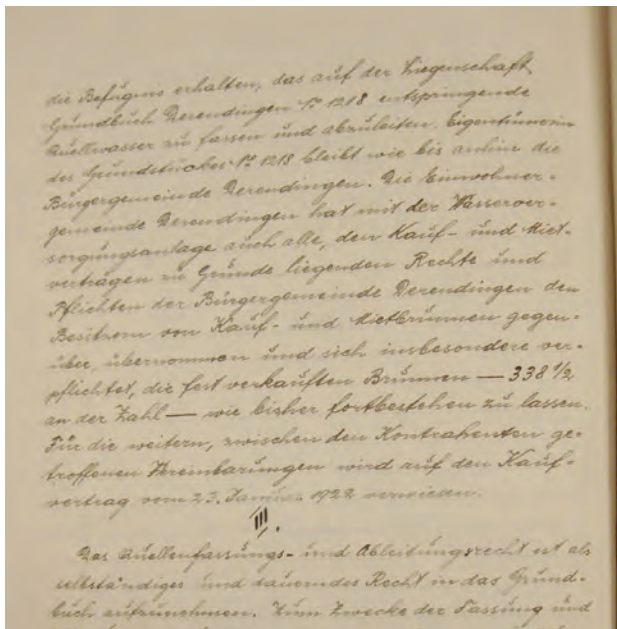 die Befugnis erhalten, das auf der Liegenschaft
Grundbuch Derendingen No 1218 entspringende
Quellwasser zu fassen und abzuleiten. Eigentümerin
des Grundstückes No 1218 bleibt wie bis anhin die
Bürgergemeinde Derendingen. Die Einwohner-
gemeinde Derendingen hat mit der Wasserver-
sorgungsanlage auch alle, den Kauf- und Miet-
verträgen zu Grunde liegenden Rechte und
Pflichten der Bürgergemeinde Derendingen den
Besitzern von Kauf- und Mietbrunnen gegen-
über, übernommen und sich insbesondere ver-
pflichtet, die fest verkauften Brunnen — 338 1/2
an der Zahl — wie bisher fortbestehen zu lassen.
Für die weitern, zwischen den Kontrahenten ge-
troffenen Vereinbarungen wird auf den Kauf-
vertrag vom 23. Januar 1922 verwiesen.
III.
Das Quellenfassungs- und Ableitungsrecht ist als
selbständiges und dauerndes Recht in das Grund-
buch aufzunehmen. Zum Zwecke der Fassung und